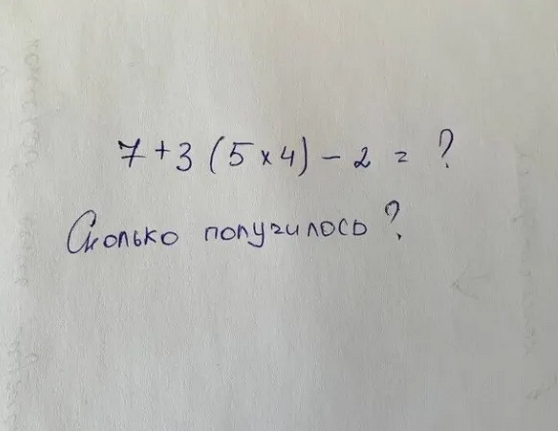 7 + 3 (5 × 4) - 2 = ?
Сколько получилось?